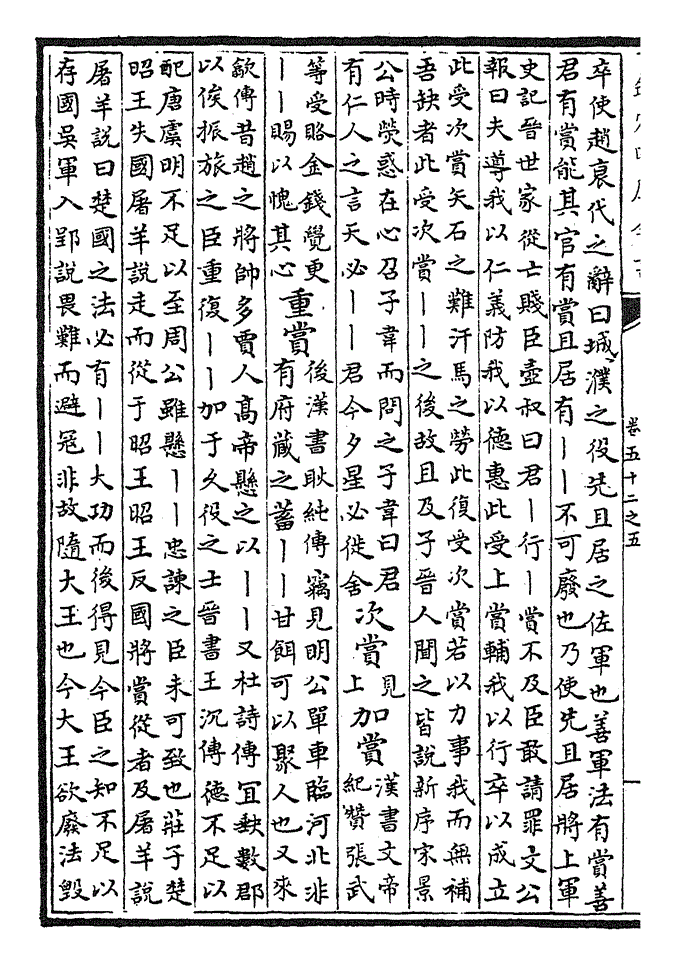 卷五十二之五
卒使趙衰代之辭曰城濮之役先且居之佐軍也善軍法有賞善
君有賞能其官有賞且居有丨丨不可廢也乃使先且居將上軍
史記晉世家從亡賤臣壺叔曰君丨行丨賞不及臣敢請罪文公
報曰夫導我以仁義防我以德惠此受上賞輔我以行卒以成立
此受次賞矢石之難汗馬之勞此復受次賞若以力事我而無補
吾缺者此受次賞丨丨之後故且及子晉人聞之皆說新序宋景
公時熒惑在心召子韋而問之子韋曰君
有仁人之言天必丨丨君今夕星必徙舍
次賞
見
上
加賞
漢書文帝
紀贊張武
等受賂金錢覺更
丨丨賜以愧其心
重賞
後漢書耿純傳竊見明公單車臨河北非
有府藏之蓄丨丨甘餌可以聚人也又來
歙傳昔趙之將帥多賈人高帝懸之以丨丨又杜詩傳冝敕數郡
以俟振旅之臣重復丨丨加于久役之士晉書王沉傳德不足以
配唐虞明不足以至周公雖懸丨丨忠諫之臣未可致也莊子楚
昭王失國屠羊說走而從于昭王昭王反國將賞從者及屠羊說
屠羊說曰楚國之法必有丨丨大功而後得見今臣之知不足以
存國吳軍入郢說畏難而避冦非故隨大王也今大王欲廢法毀